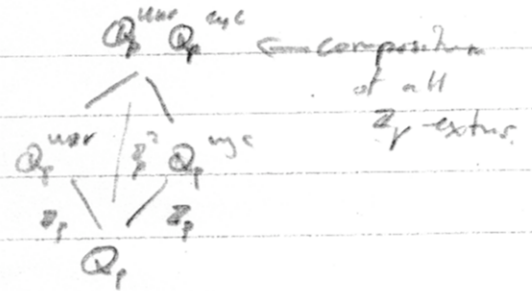 Q_p^{unr} Q_p^{cyc} ⟸ compositum
of all
Z_p-extns.
Q_p^{unr} Z_p^2 Q_p^{cyc}
Z_p Z_p
Q_p